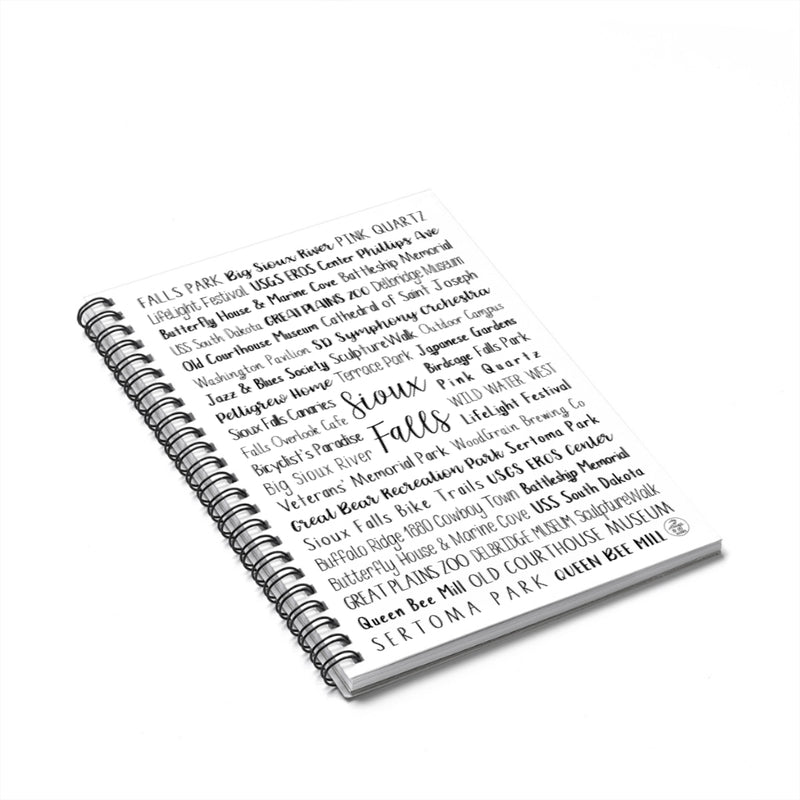 FALLS PARK Big Sioux River PINK QUARTZ
LifeLight Festival USGS EROS Center Phillips Ave
Butterfly House & Marine Cove Battleship Memorial
USS South Dakota GREAT PLAINS ZOO Delbridge Museum
Old Courthouse Museum Cathedral of Saint Joseph
Washington Pavilion SD Symphony Orchestra
Jazz & Blues Society SculptureWalk Outdoor Campus
Pelligrew Home Terrace Park Japanese Gardens
Sioux Falls Canaries Sioux Birdcage Falls Park
Falls Overlook Cafe Pink Quartz
Bicyclist's Paradise Falls WILD WATER WEST
Big Sioux River LifeLight Festival
Veterans' Memorial Park WoodGrain Brewing Co
Great Bear Recreation Park Sertoma Park
Sioux Falls Bike Trails USGS EROS Center
Buffalo Ridge 1880 Cowboy Town Battleship Memorial
Butterfly House & Marine Cove USS South Dakota
GREAT PLAINS ZOO DELBRIDGE MUSEUM SculptureWalk
Queen Bee Mill OLD COURTHOUSE MUSEUM
SERTOMA PARK QUEEN BEE MILL